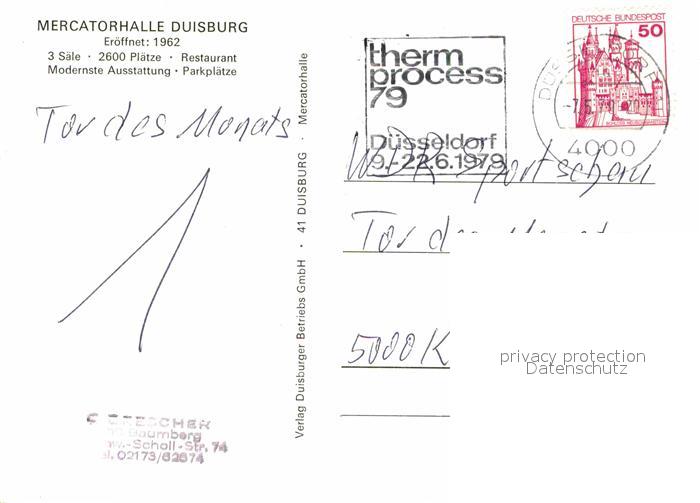 MERCATORHALLE DUISBURG
Eröffnet: 1962
3 Säle · 2600 Plätze · Restaurant
Modernste Ausstattung · Parkplätze
Tor des Monats
1
Verlag Duisburger Betriebs GmbH · 41 DUISBURG · Mercatorhalle
therm
process
79
Düsseldorf
9.-22.6.1979
DEUTSCHE BUNDESPOST
50
4000
WDR Sportschau
Tor des
5000 K
privacy protection
Datenschutz
DRESCHER
Baumberg
-Scholl-Str. 74
02173/62674